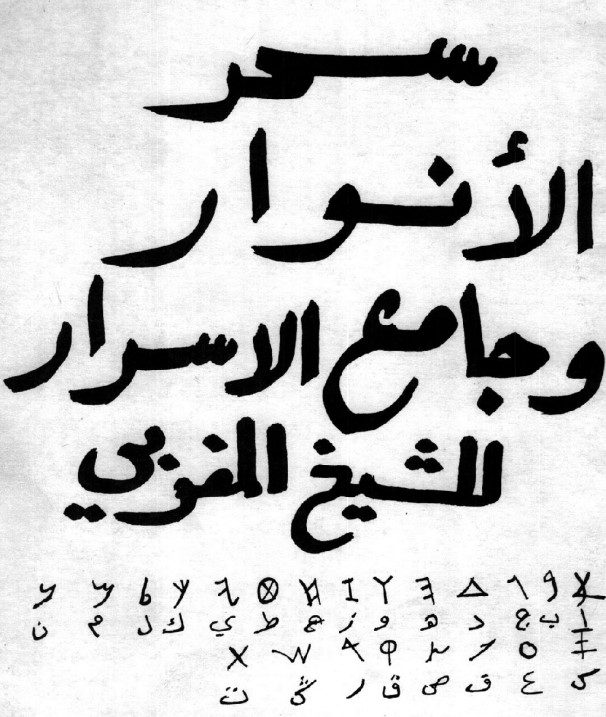 سحر
الأنوار
وجامع الاسرار
للشيخ المغربي
𐤀 𐤁 𐤂 𐤃 𐤄 𐤅 𐤆 𐤇 𐤈 𐤉 𐤊 𐤋 𐤌 𐤍
ا ب ج د ه و ز ح ط ي ك ل م ن
𐤎 𐤏 𐤐 𐤑 𐤒 𐤓 𐤔 𐤕
س ع ف ص ق ر ش ت